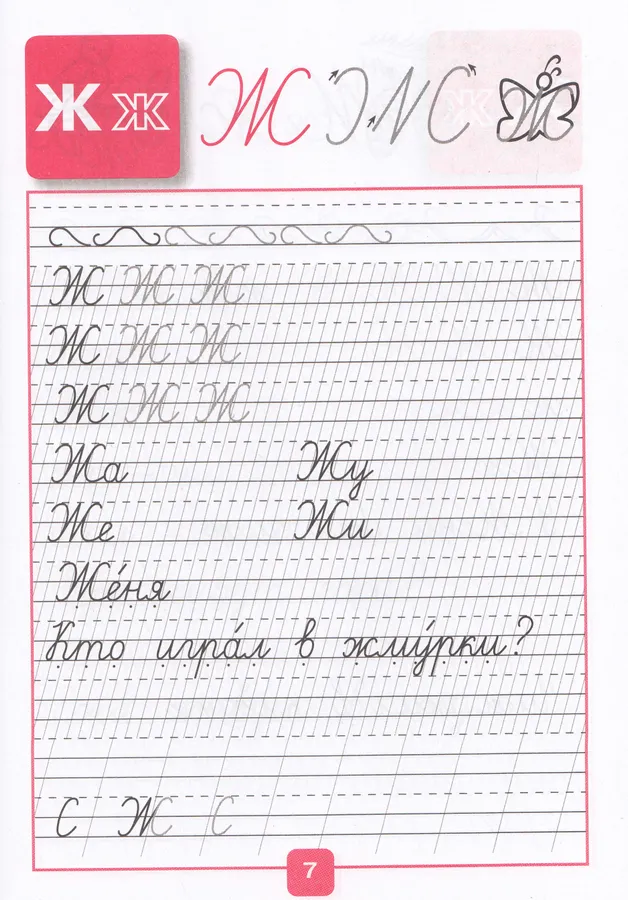 Ж ж Ж
Ж Ж Ж
Ж Ж Ж
Ж Ж Ж
Жа Жу
Же Жи
Же́ня
Кто игра́л в жму́рки?
С Ж С
7